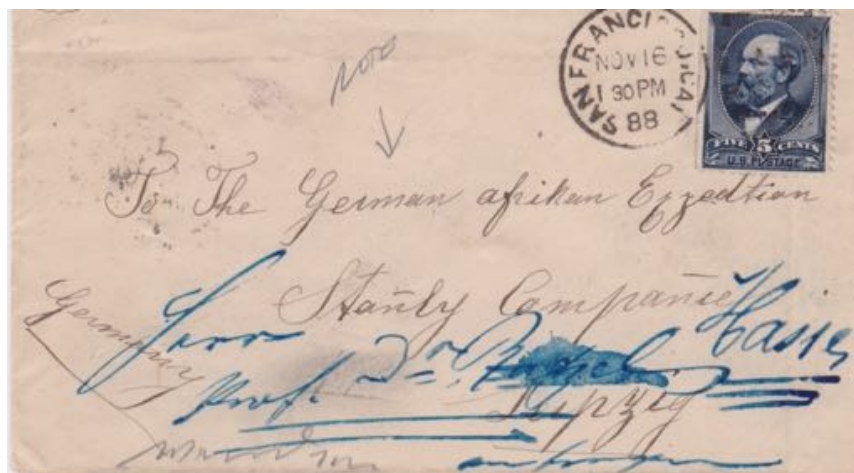 SAN FRANCISCO, CAL
NOV 16
1 30 PM
88
FIVE 5 CENTS
U.S. POSTAGE
Note
To The German afrikan Expedtion
Stanly Companie
Germany
Herr
Hasse
Prof. Dr.
Leipzig